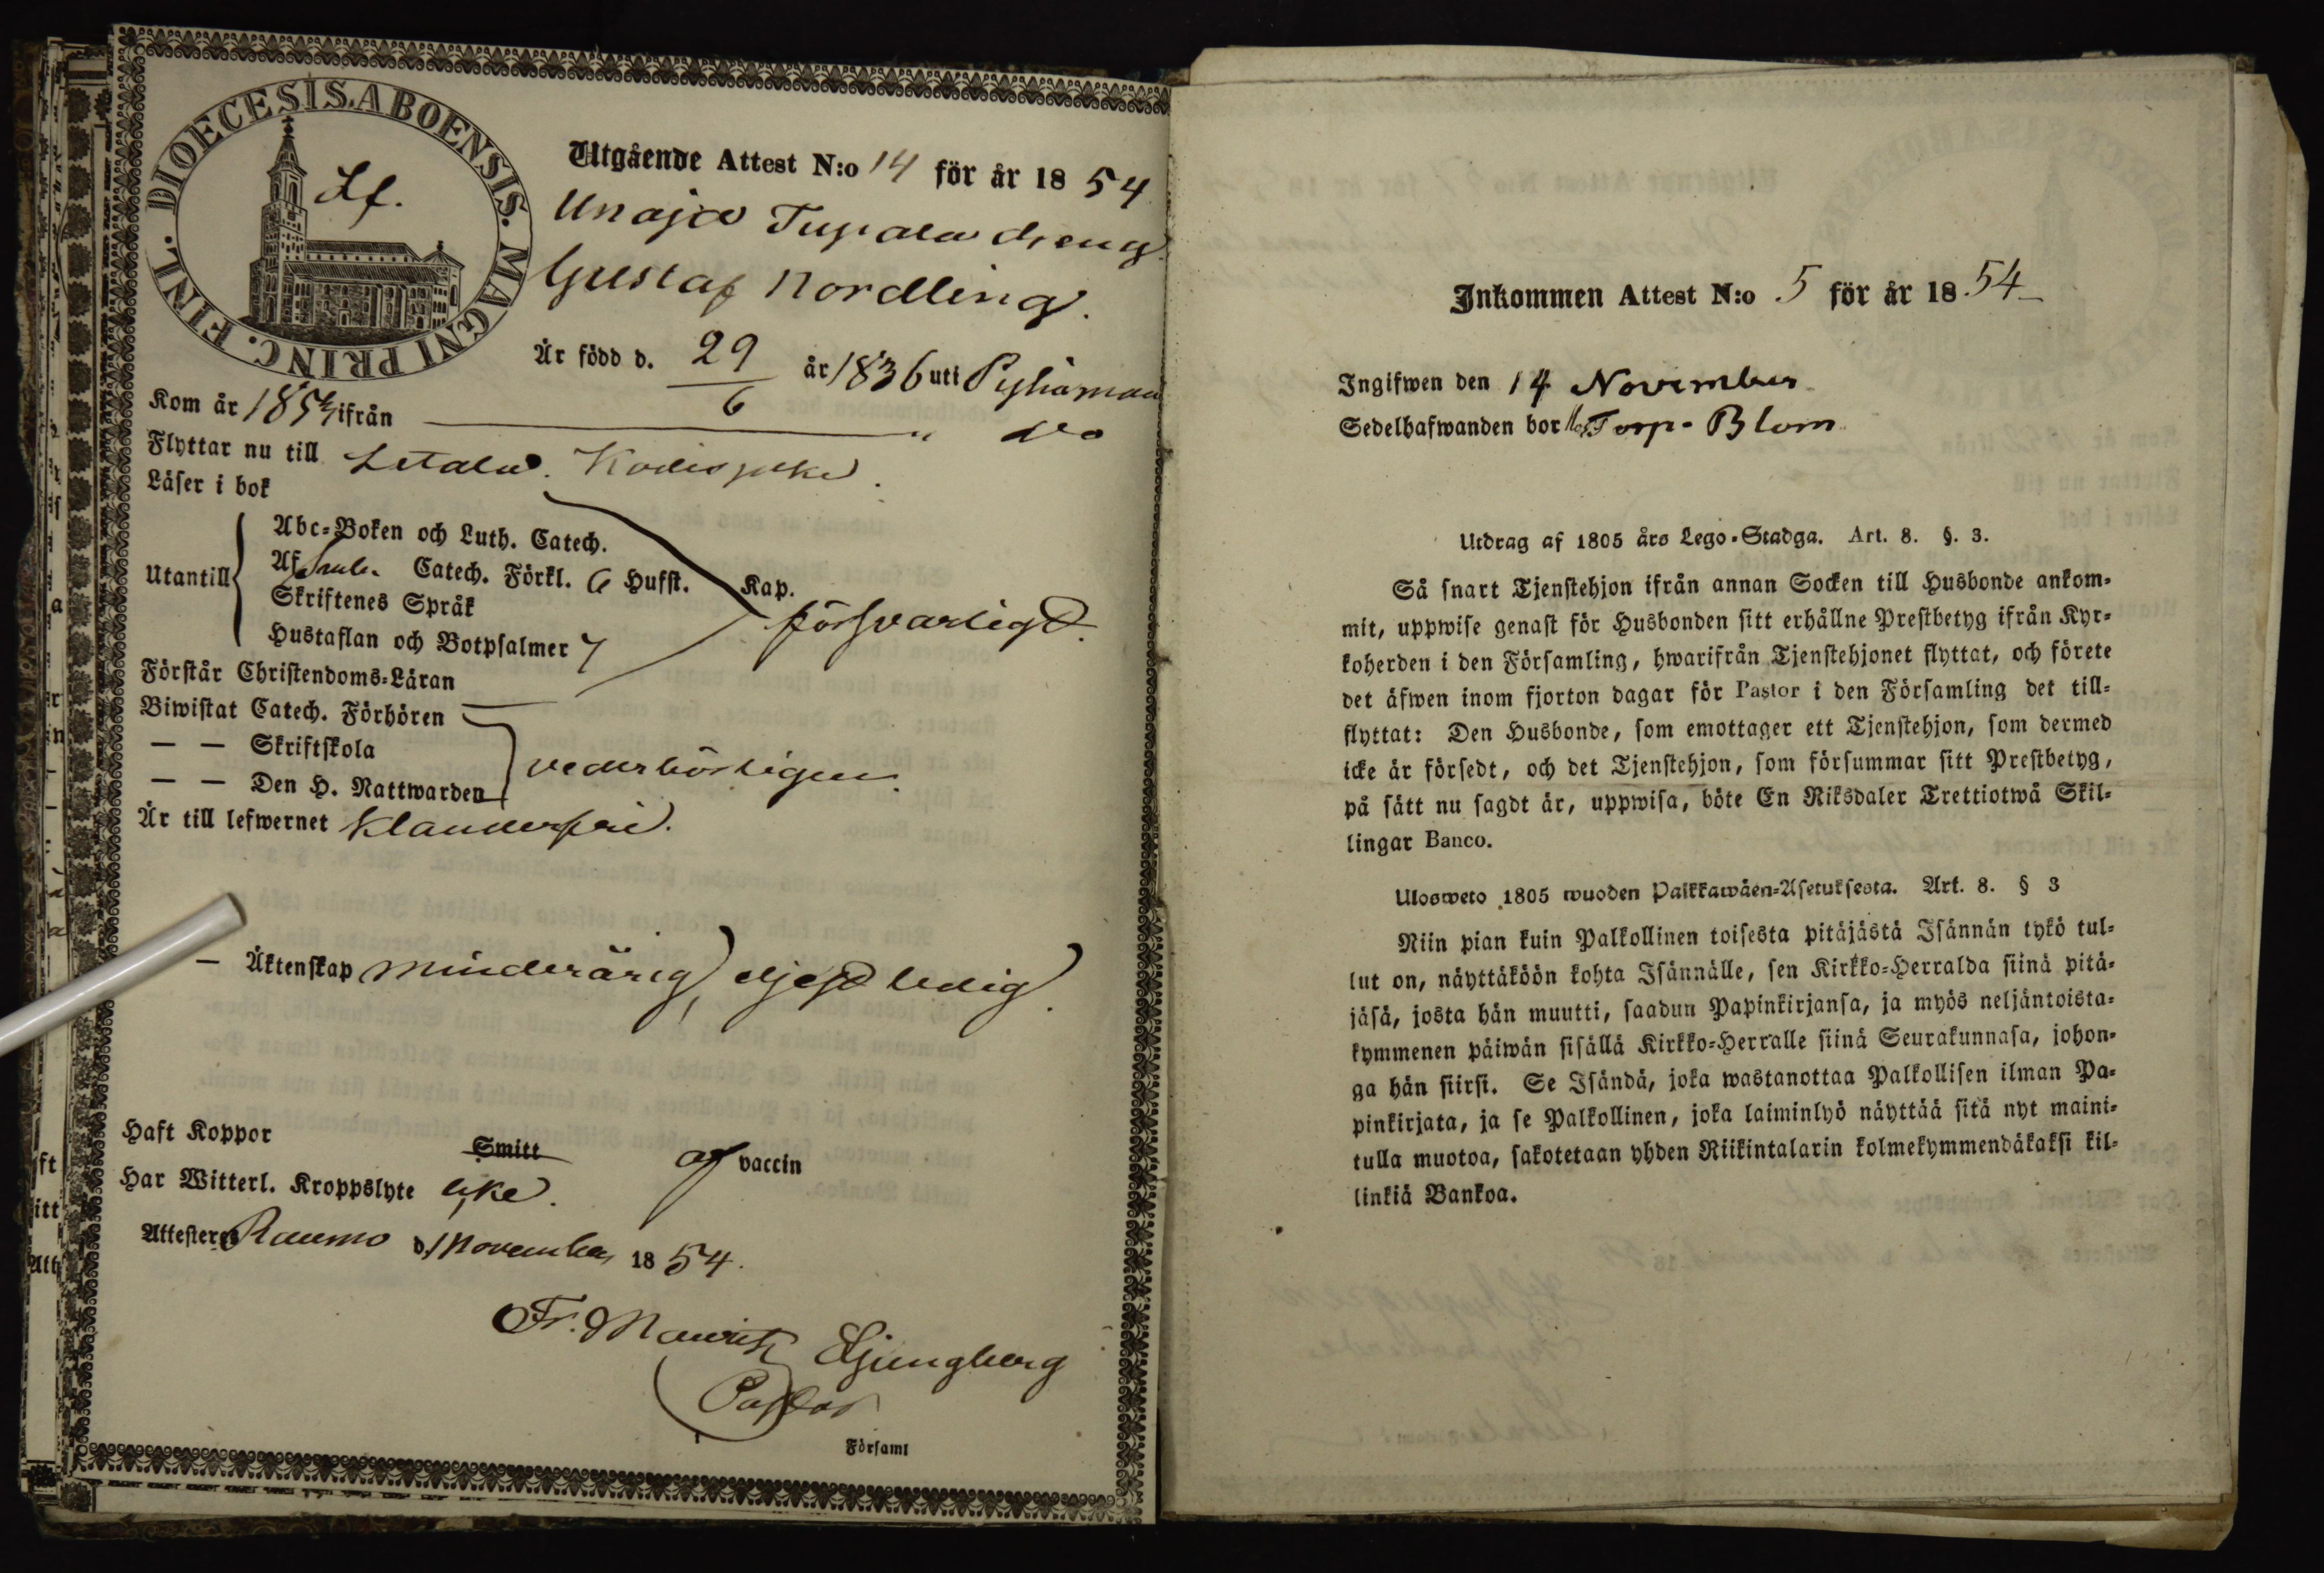 DIOECESIS. ABOENSIS. MAGNI PRINC. FINL.
Lf.
Utgående Attest N:o 14 för år 18 54
Unaja Tupala dreng
Gustaf Nordling.
Är född d. 29/6 år 1836 uti Pyhämaa
Kom år 1854 ifrån " do
Flyttar nu till Letala. Kodisjoki.
Läser i bok
Utantill
Abc-Boken och Luth. Catech.
Af Catech. Förkl. 6 Hufst. Kap.
försvarligt.
Skriftenes Språk
Hustaflan och Botpsalmer 7
Förstår Christendoms-Läran
Biwistat Catech. Förhören
— — Skriftskola
vederbörligen.
— — Den H. Nattwarden
Är till lefwernet klanderfri.
— Äktenskap minderårig, eljest ledig.
Haft Koppor Smitt af vaccin
Har Witterl. Kroppslyte icke.
Attesterar Raumo d. 1 November 18 54.
Fr. Mauritz Ljungberg
Pastor
Församl
Inkommen Attest N:o 5 för år 18 54
Ingifwen den 14 November
Sedelhafwanden bor Torp- Blom
Utdrag af 1805 års Lego-Stadga. Art. 8. §. 3.
Så snart Tjenstehjon ifrån annan Socken till Husbonde ankom-
mit, uppwise genast för Husbonden sitt erhållne Prestbetyg ifrån Kyr-
koherden i den Församling, hwarifrån Tjenstehjonet flyttat, och förete
det äfwen inom fjorton dagar för Pastor i den Församling det till-
flyttat: Den Husbonde, som emottager ett Tjenstehjon, som dermed
icke är försedt, och det Tjenstehjon, som försummar sitt Prestbetyg,
på sätt nu sagdt är, uppwisa, böte En Riksdaler Trettiotwå Skil-
lingar Banco.
Ulosweto 1805 wuoden Palkkawäen-Asetuksesta. Art. 8. § 3
Niin pian kuin Palkollinen toisesta pitäjästä Isännän tykö tul-
lut on, näyttäköön kohta Isännälle, sen Kirkko-Herralda siinä pitä-
jäsä, josta hän muutti, saadun Papinkirjansa, ja myös neljäntoista-
kymmenen päiwän sisällä Kirkko-Herralle siinä Seurakunnasa, johon-
ga hän siirsi. Se Isändä, joka wastanottaa Palkollisen ilman Pa-
pinkirjata, ja se Palkollinen, joka laiminlyö näyttää sitä nyt maini-
tulla muotoa, sakotetaan yhden Riikintalarin kolmekymmendäkaksi kil-
linkiä Bankoa.